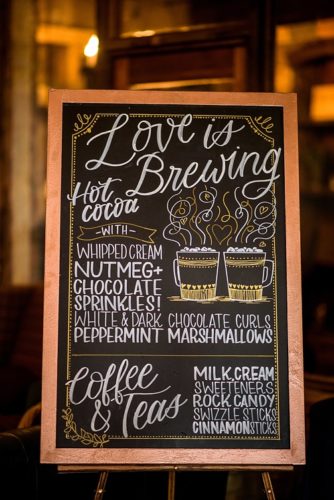 Love is
Brewing
Hot
cocoa
-WITH-
WHIPPED CREAM
NUTMEG+
CHOCOLATE
SPRINKLES!
WHITE & DARK CHOCOLATE CURLS
PEPPERMINT MARSHMALLOWS
Coffee
& Teas
MILK, CREAM
SWEETENERS
ROCK CANDY
SWIZZLE STICKS
CINNAMON STICKS